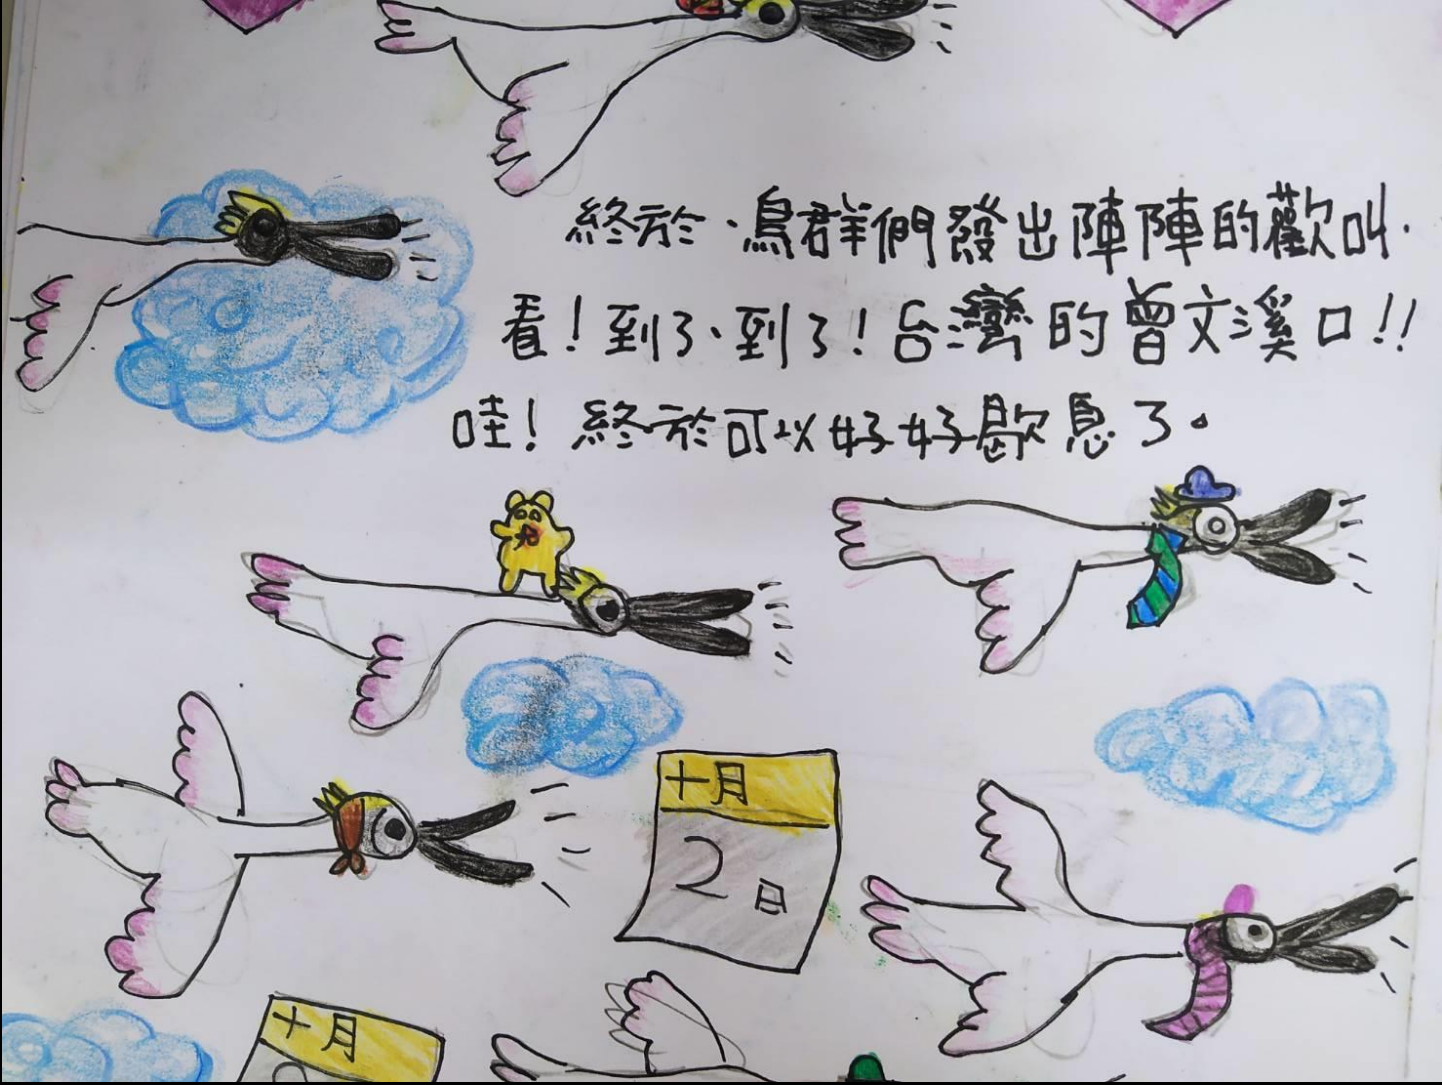 終於、鳥群們發出陣陣的歡叫.
看!到了、到了!台灣的曾文溪口!!
哇!終於可以好好歇息了。
十月
2日
十月